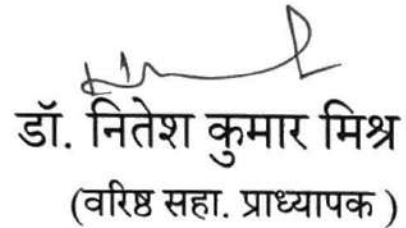 डॉ. नितेश कुमार मिश्र
(वरिष्ठ सहा. प्राध्यापक )